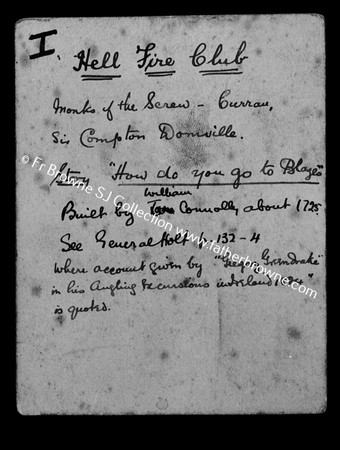 I.
Hell Fire Club
Monks of the Screw - Curran,
Sir Compton Domville.
Story "How do you go to Blazes"
William
Built by Tom Connolly about 1725
See General Holt 1. 132-4
where account given by "Greydrake"
in his Angling Excursions in Ireland
is quoted.
© Fr Browne SJ Collection www.fatherbrowne.com